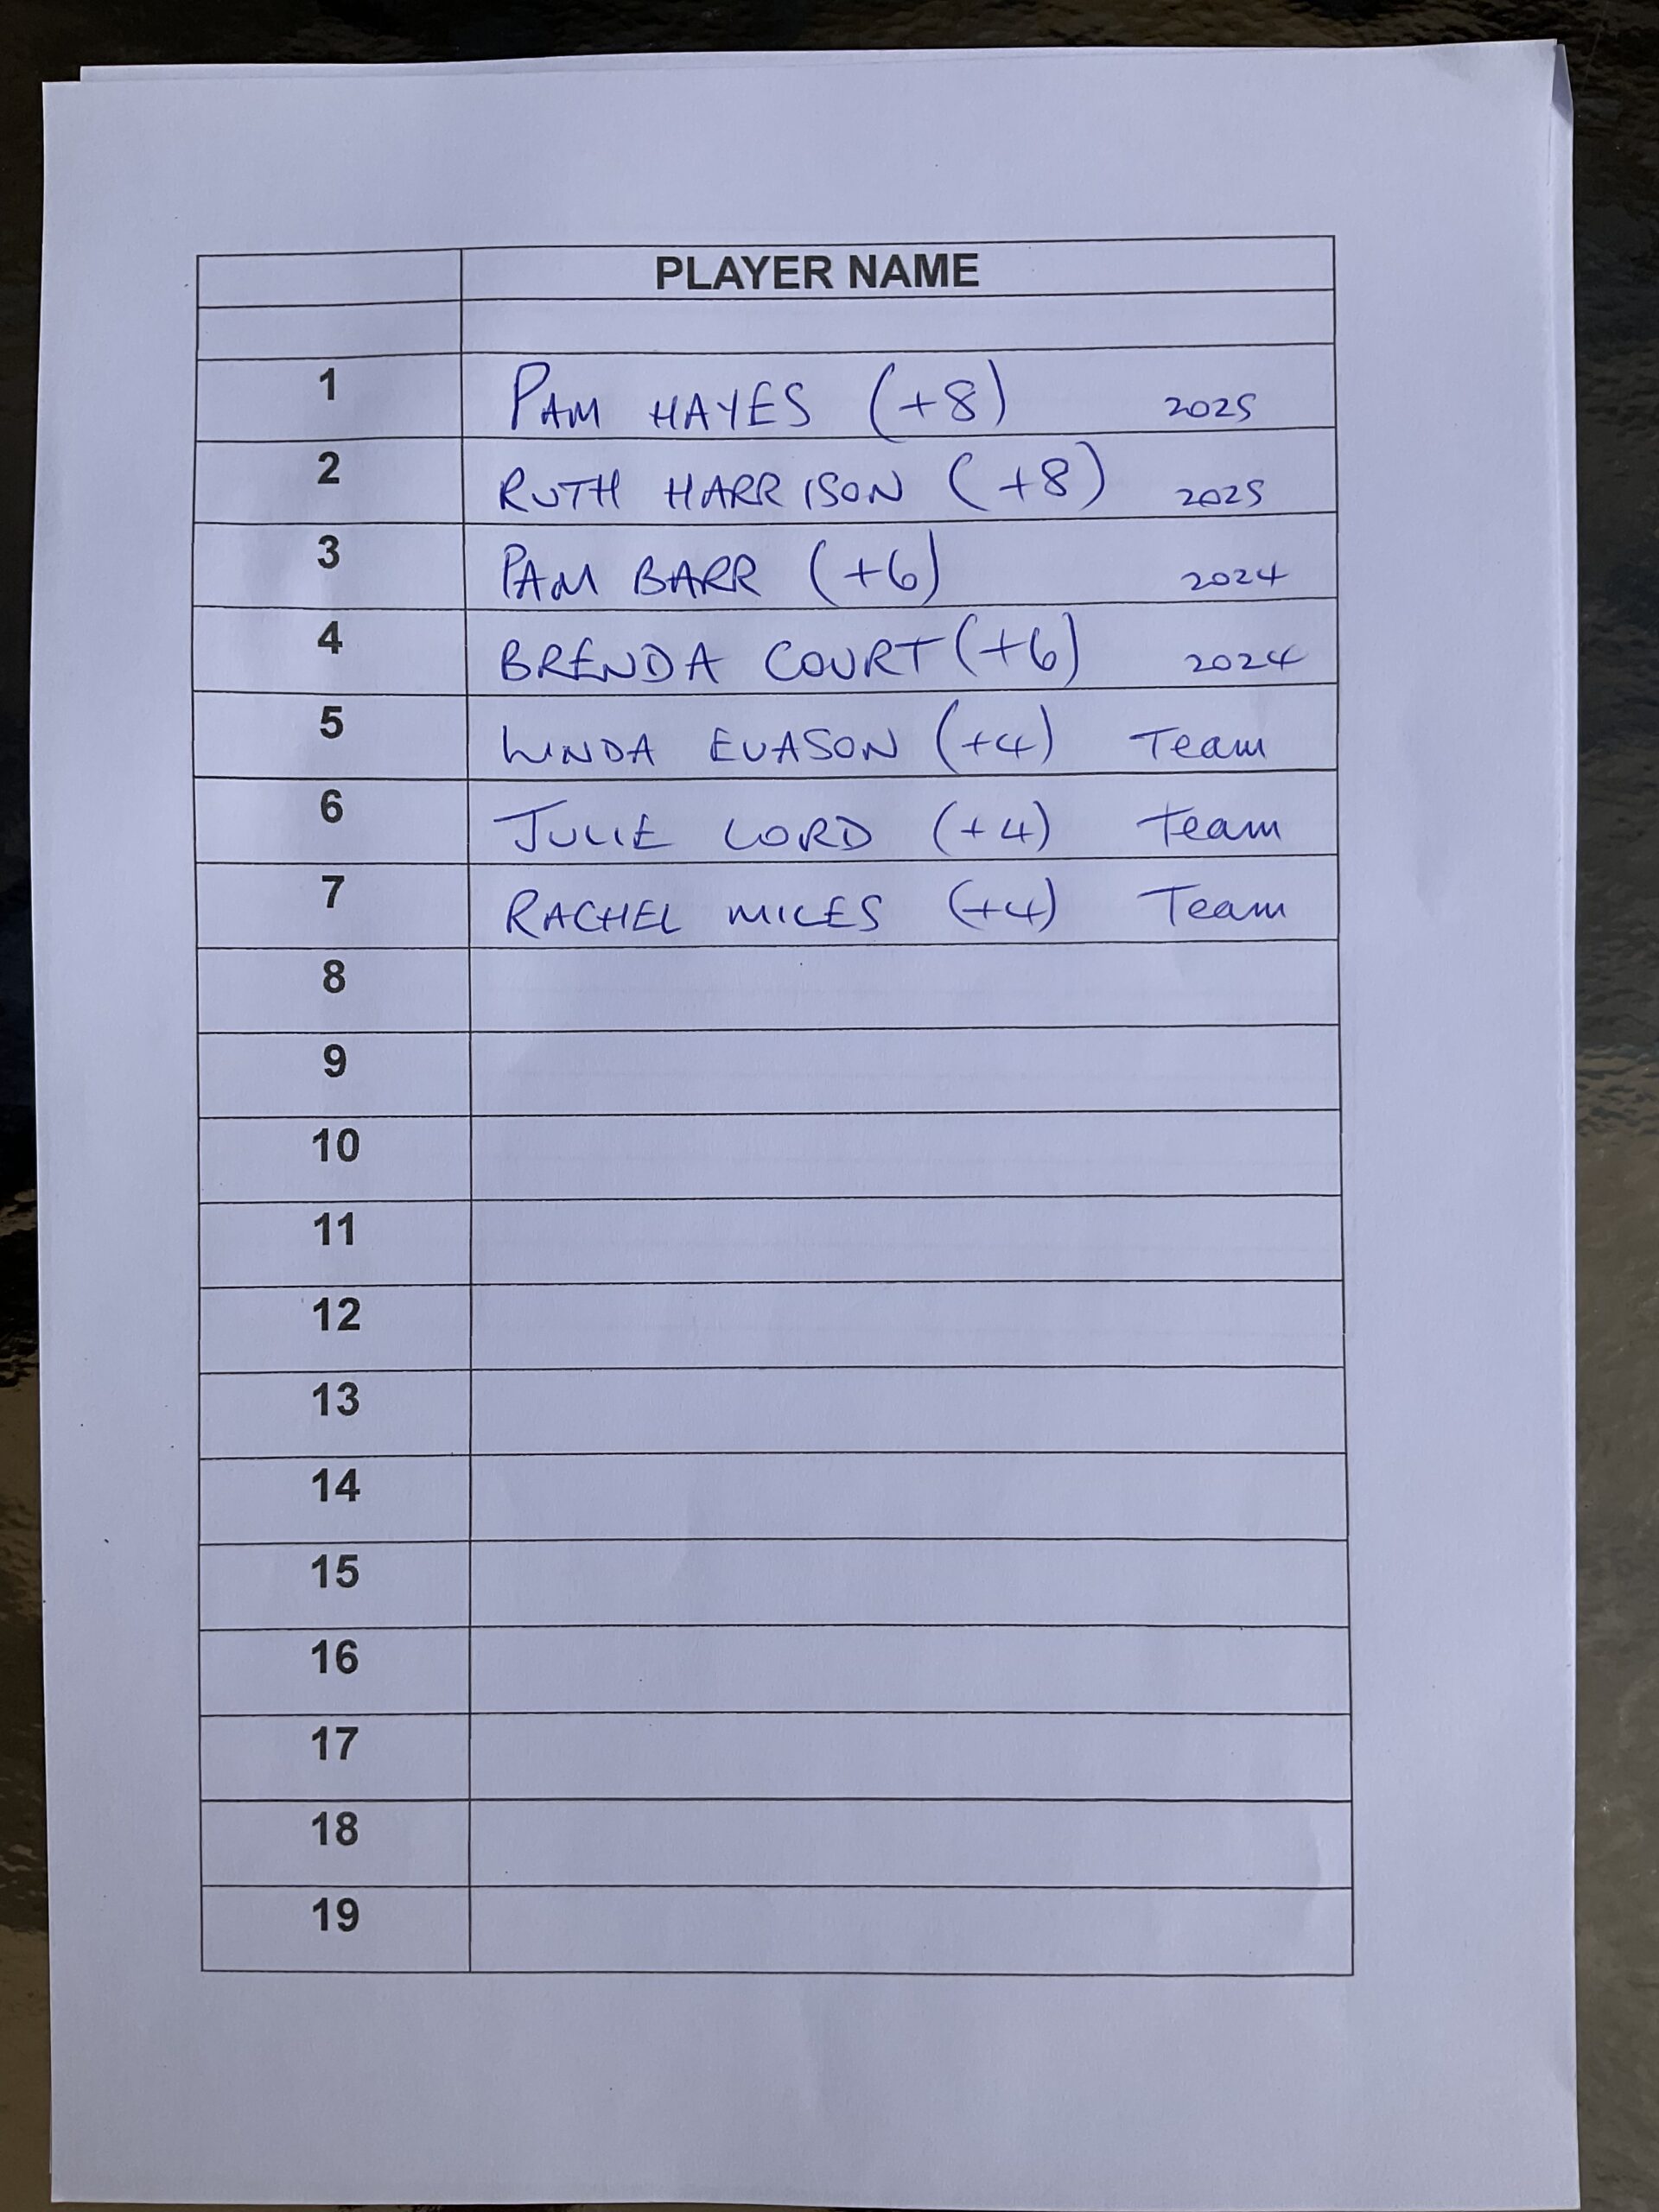 PLAYER NAME
1 PAM HAYES (+8) 2025
2 RUTH HARRISON (+8) 2025
3 PAM BARR (+6) 2024
4 BRENDA COURT (+6) 2024
5 LINDA EVASON (+4) Team
6 JULIE LORD (+4) Team
7 RACHEL MILES (+4) Team
8
9
10
11
12
13
14
15
16
17
18
19